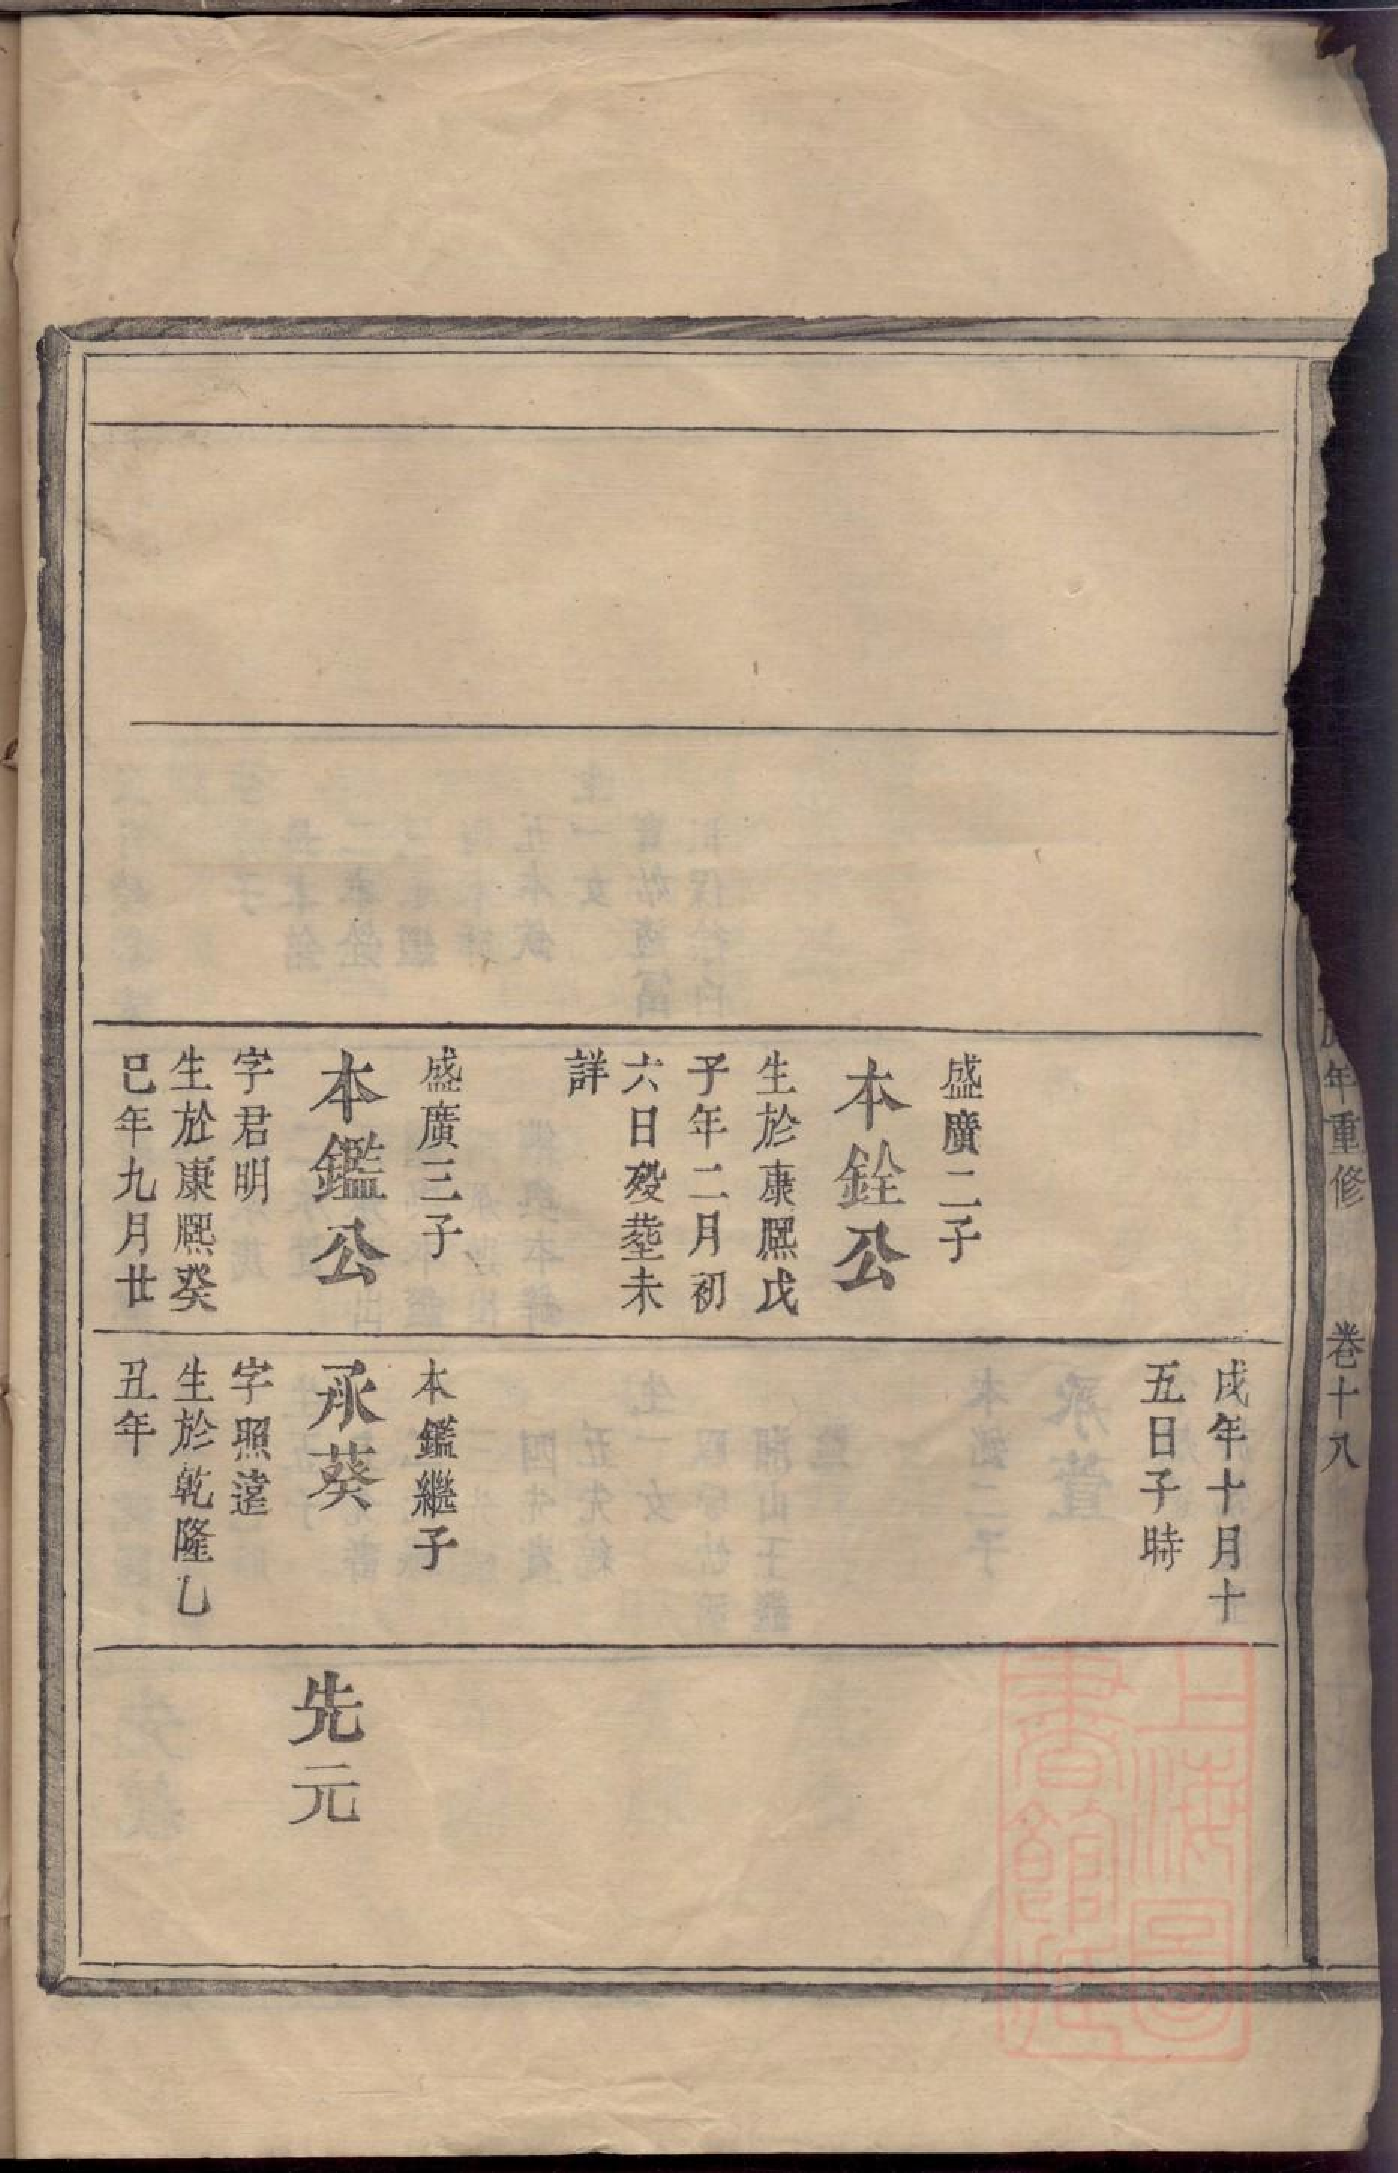 年重修
卷十八
盛廣二子
本銓公
生於康熙戊
子年二月初
六日歿塟未
詳
盛廣三子
本鑑公
字君明
生於康熙癸
巳年九月廿
戌年十月十
五日子時
本鑑繼子
承葵
字照遠
生於乾隆乙
丑年
先元
上海圖
書館藏